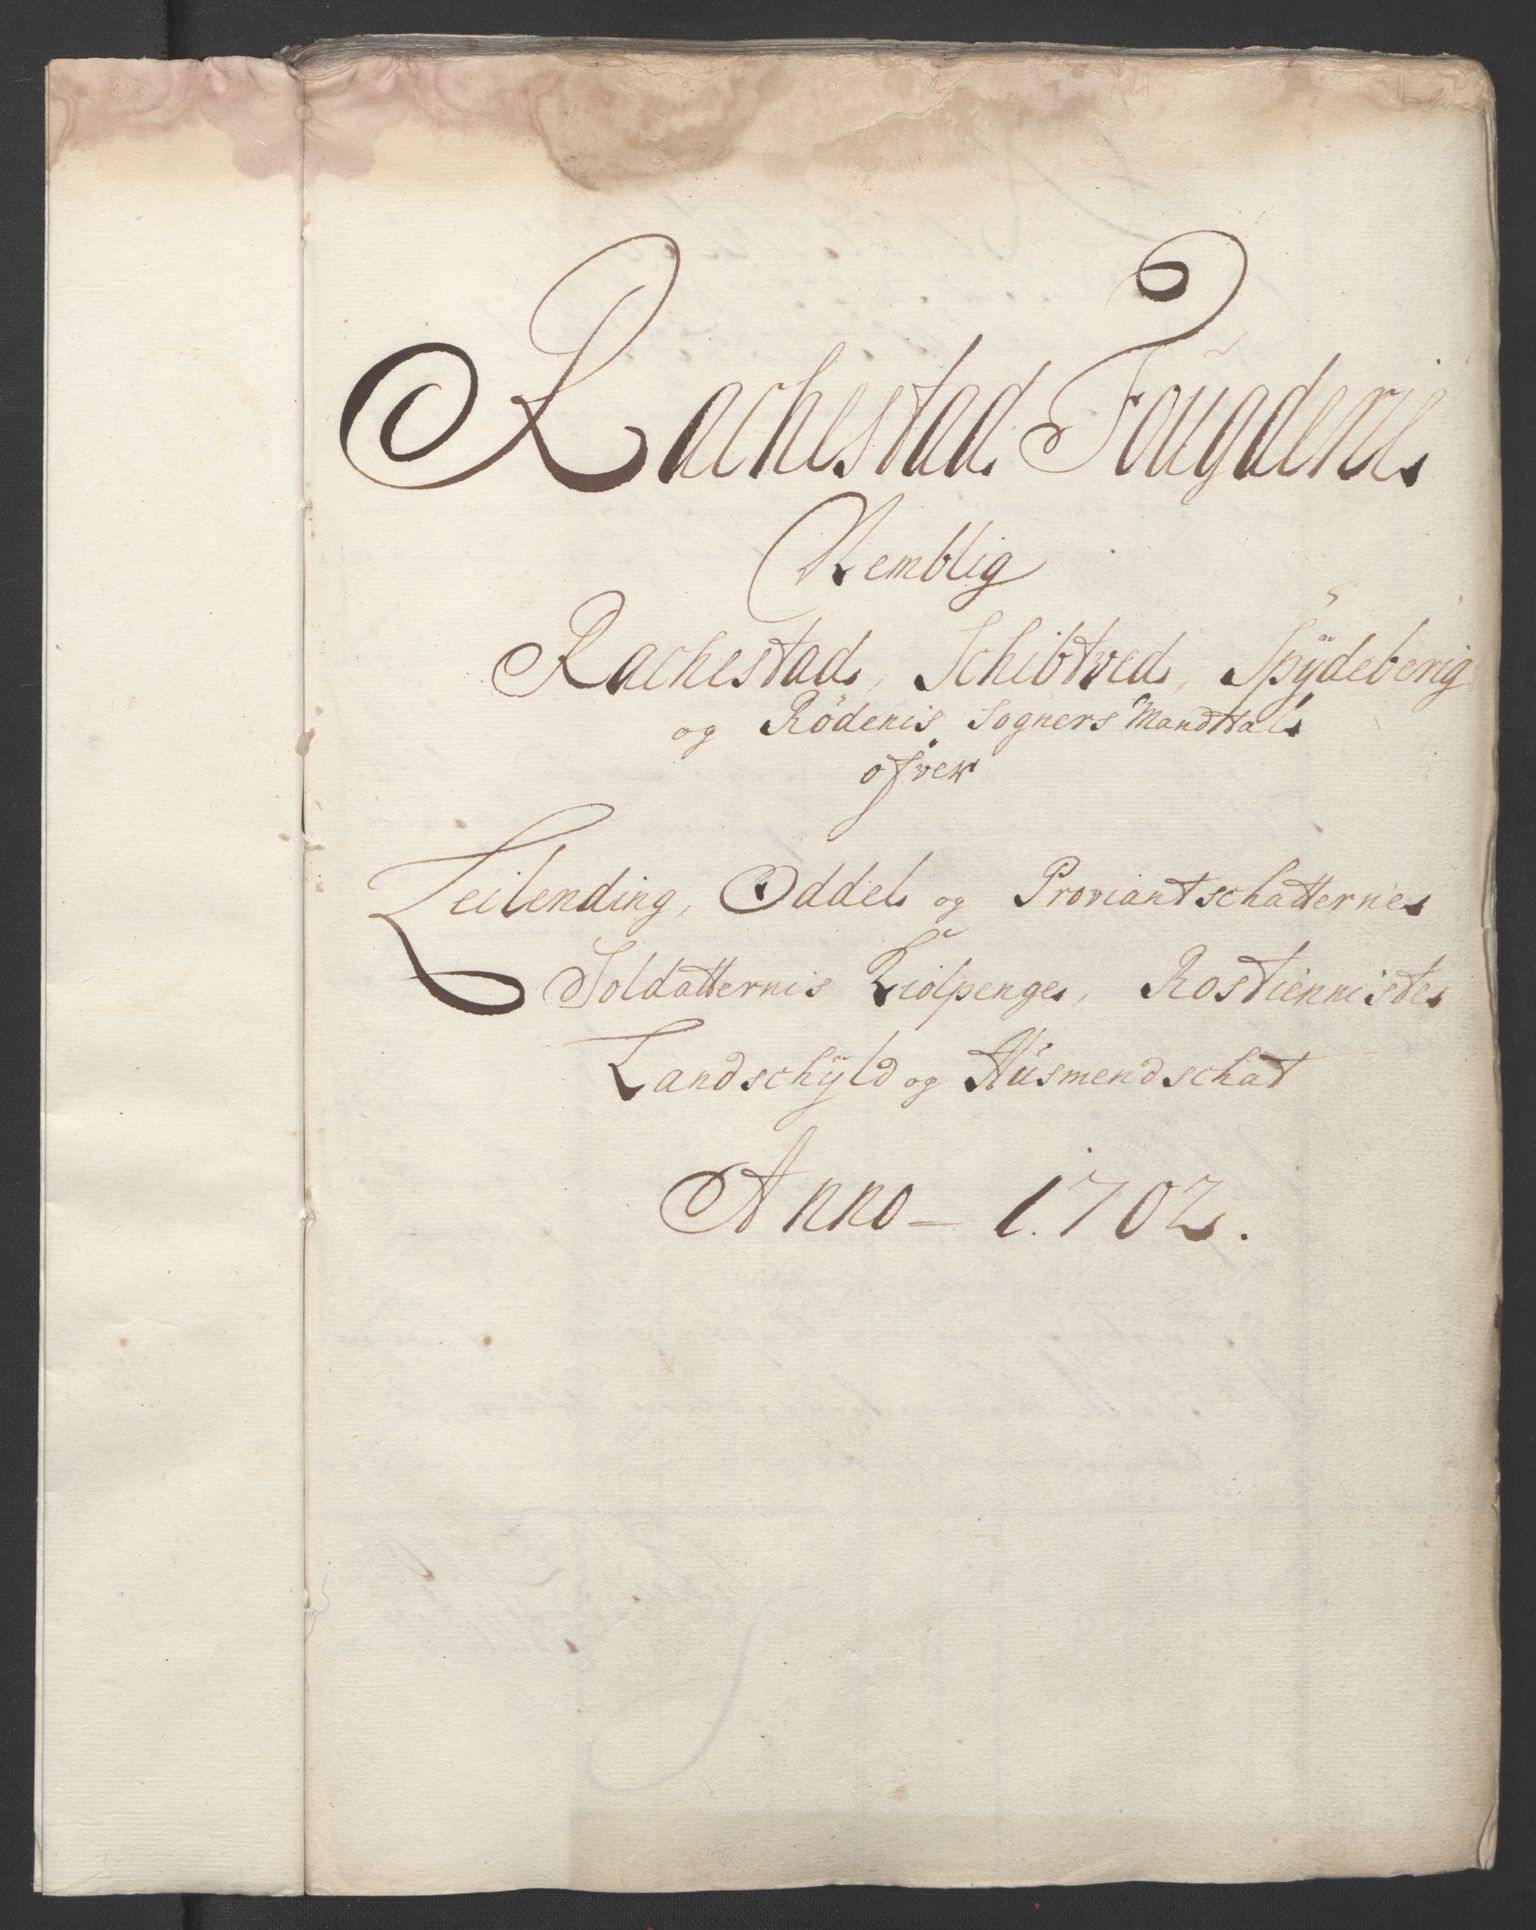 Rachestad Fougderie
Nemblig
Rachestad, Schibtved, Spÿdeberig
og Rødenis Sogners Mandtal
ofver
Leilending, Oddel og Proviantschatterne
Soldatternis Kiolpenge, Rostienniste
Landschÿld og Husmendschat
Anno - 1702.